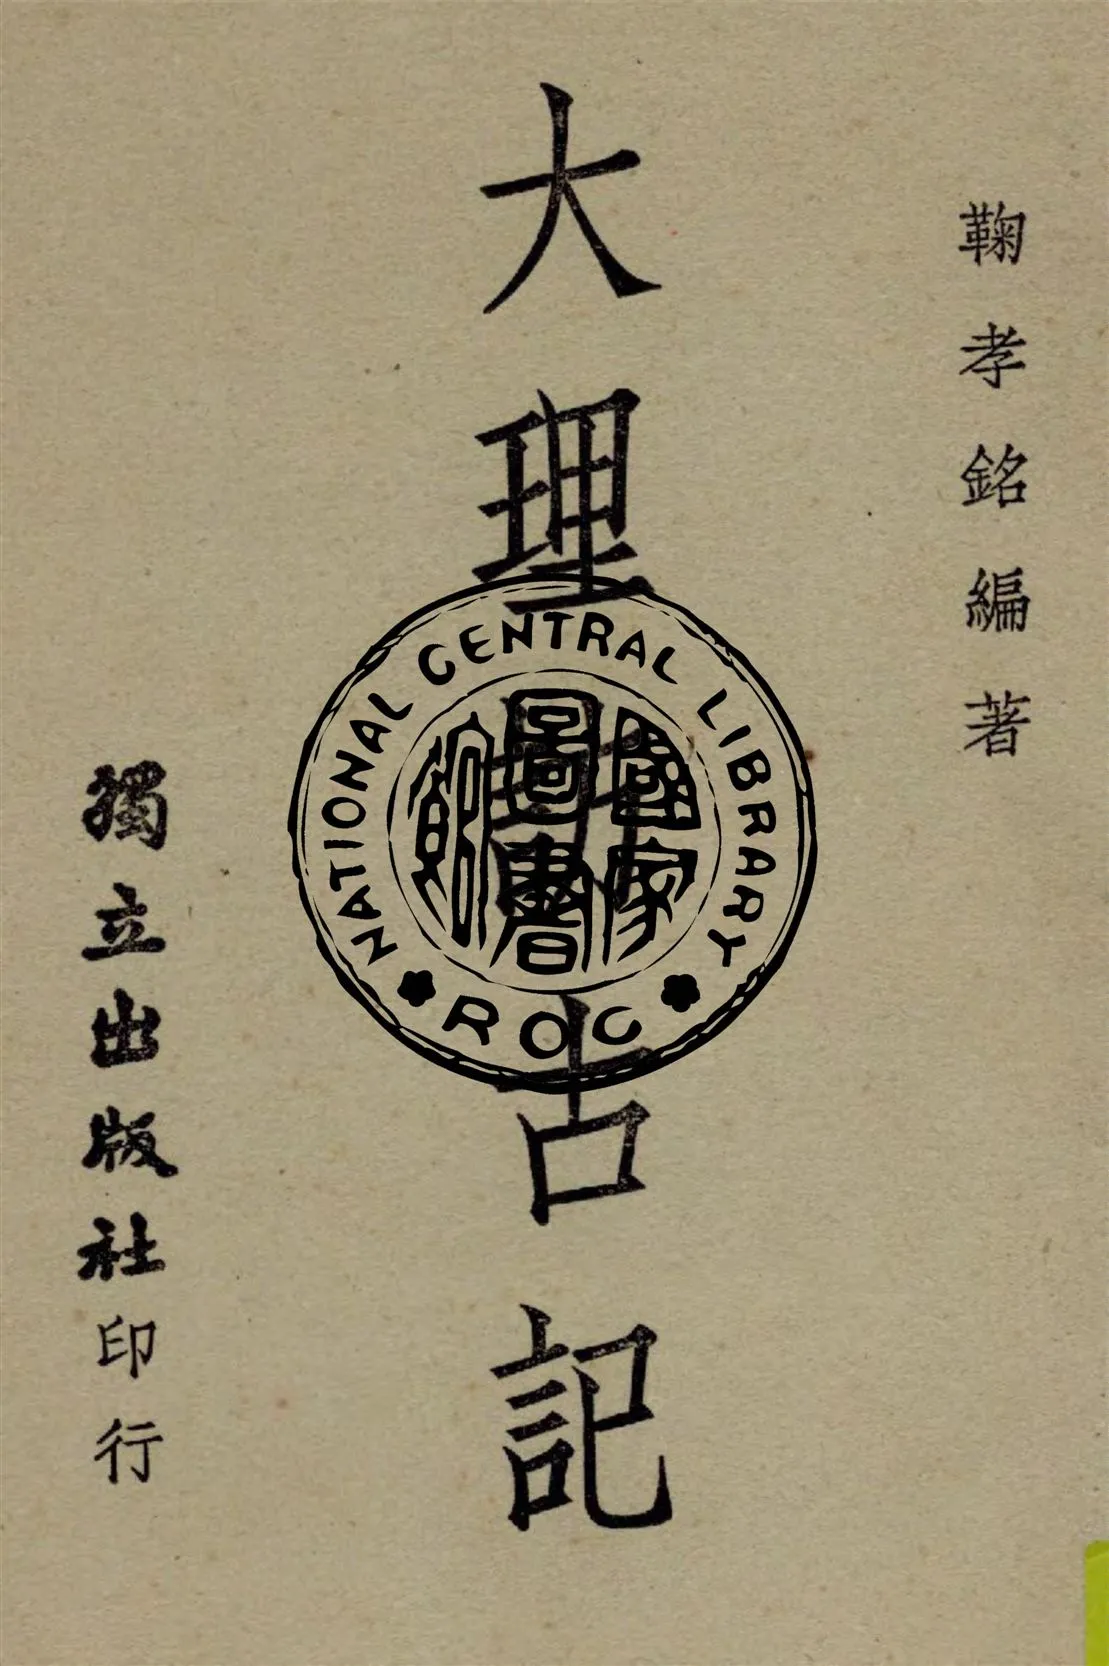 鞠孝銘編著
大理古記
獨立出版社印行
NATIONAL CENTRAL LIBRARY
國家
圖書
館
ROC